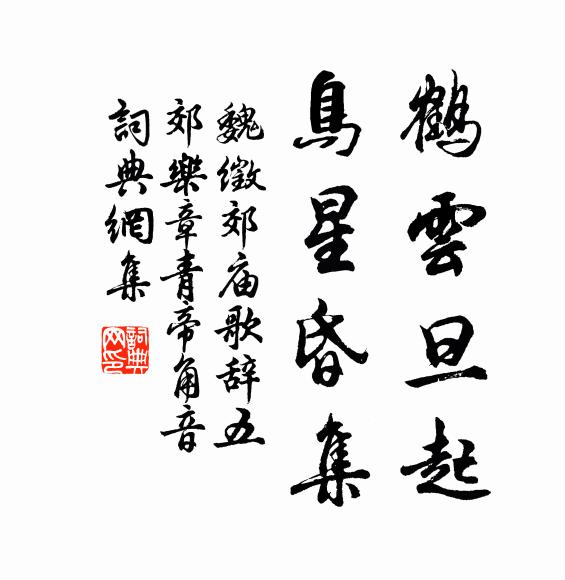 鶴雲旦起
鳥星昏集
魏徵郊庙歌辞五
郊樂章青帝角音
詞典網集
詞典
网印